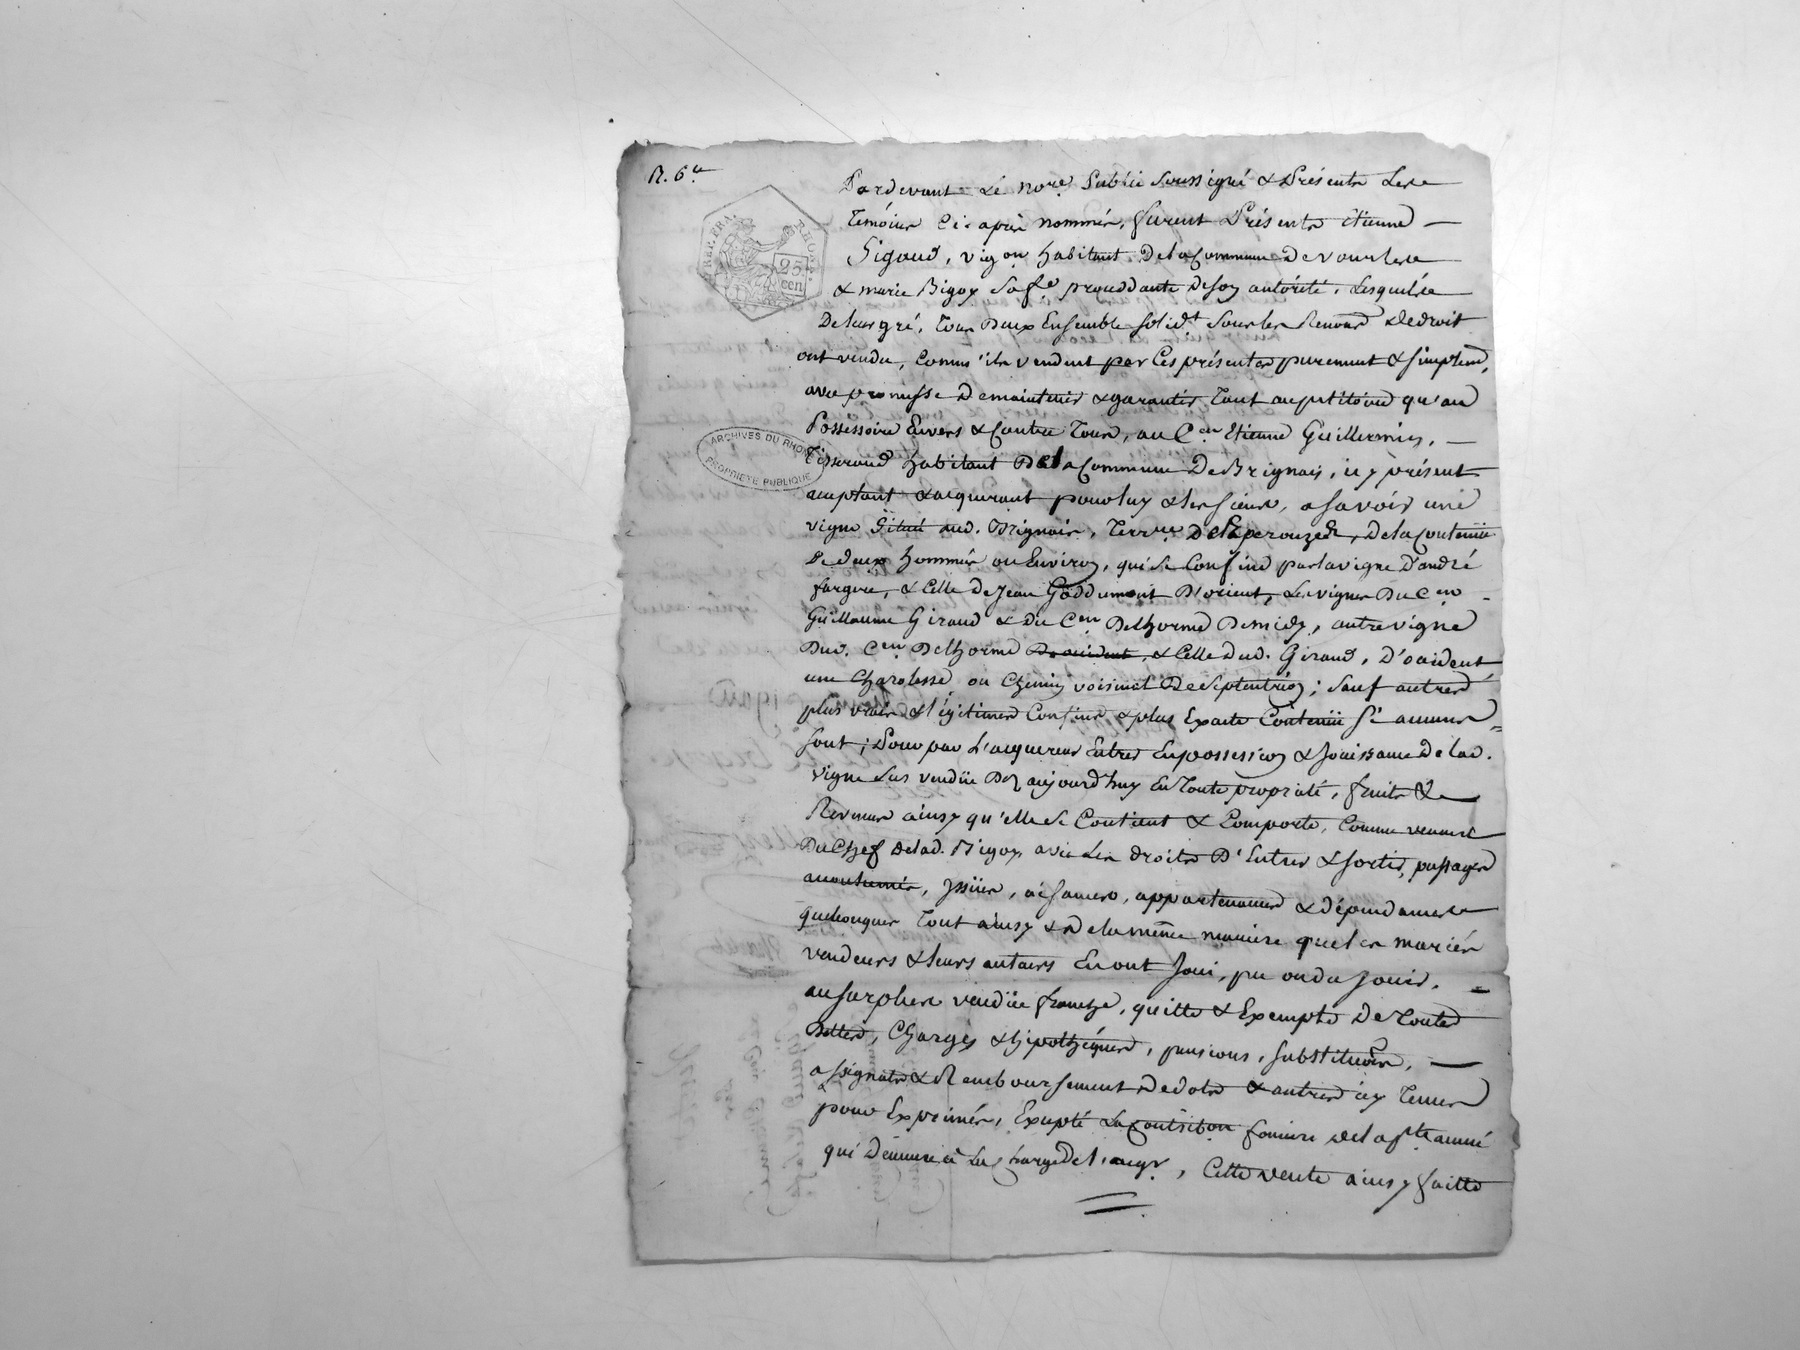 R. 6.e
RÉP. FRA.
RHONE
25
cen
ARCHIVES DU RHONE
PROPRIÉTÉ PUBLIQUE
Pardevant Le nore. Public Soussigné & Présents Les
Temoins Ci-après nommés, furent Présents étienne
Sigaud, vigon habitant Dela Commune De vourles
& marie Bigoy Sa fe. procddante De Son autorité, Lesquels
De leur gré, Tous Deux Ensemble Solidt. Sous les Renond. De droit
ont vendu, Comme ils vendent par Ces présentes purement & Simplemt,
avec promesse De maintenir & garantir Tant au petitoire qu'au
Possessoire Envers & Contre Tous, au Cen Etienne Guillermin,
Tisserand habitant Dela Commune De Brignais, icy présent
acceptant & acquerant pour luy & les Siens, a Savoir une
vigne Situé aud. Brignais, Terre. De Dela Contenüe
De deux hommés ou Environ, qui Se Confine par la vigne D'andré
fargere, & Celle De Jean Goddumont D'orient, Les vignes Du Cen
Guillaume Giraud & Du Cen Delhorme De midy, autre vigne
Dud. Cen Delhorme & Celle Dud. Giraud, D'occident
une Charolesse ou Chemin voisinal De Septentrion; Sauf autres
plus vrais & légitimes Confins & plus Exacte Contenüe Si aucuns
Sont; Pour par L'acquereur Entrer En possession & Jouissance De lad.
vigne Sus vendüe Dez aujourd'huy En Toute propriété, fruits &
Revenus ainsy qu'elle Se Contient & Comporte, Comme venant
Du Chef Delad. Bigoy, avec Les droits D'Entrer & Sortir, passages
accoutumés, yssües, aisances, appartenances & dépendances
quelconques Tout ainsy & De la même maniere que les mariés
vendeurs & leurs auteurs En ont Joui, pu ou du Jouir,
au Surplus vendüe franche, quitte & Exempte De Toutes
Dettes, Charges & hipothéques, pensions, Substitutions,
assignats & Remboursement De dots & autres icy Tenus
pour Exprimés, Excepté La Contribon fonciere De la pte. année
qui Demeure à La Charge De l'acqr., Cette vente ainsy faitte